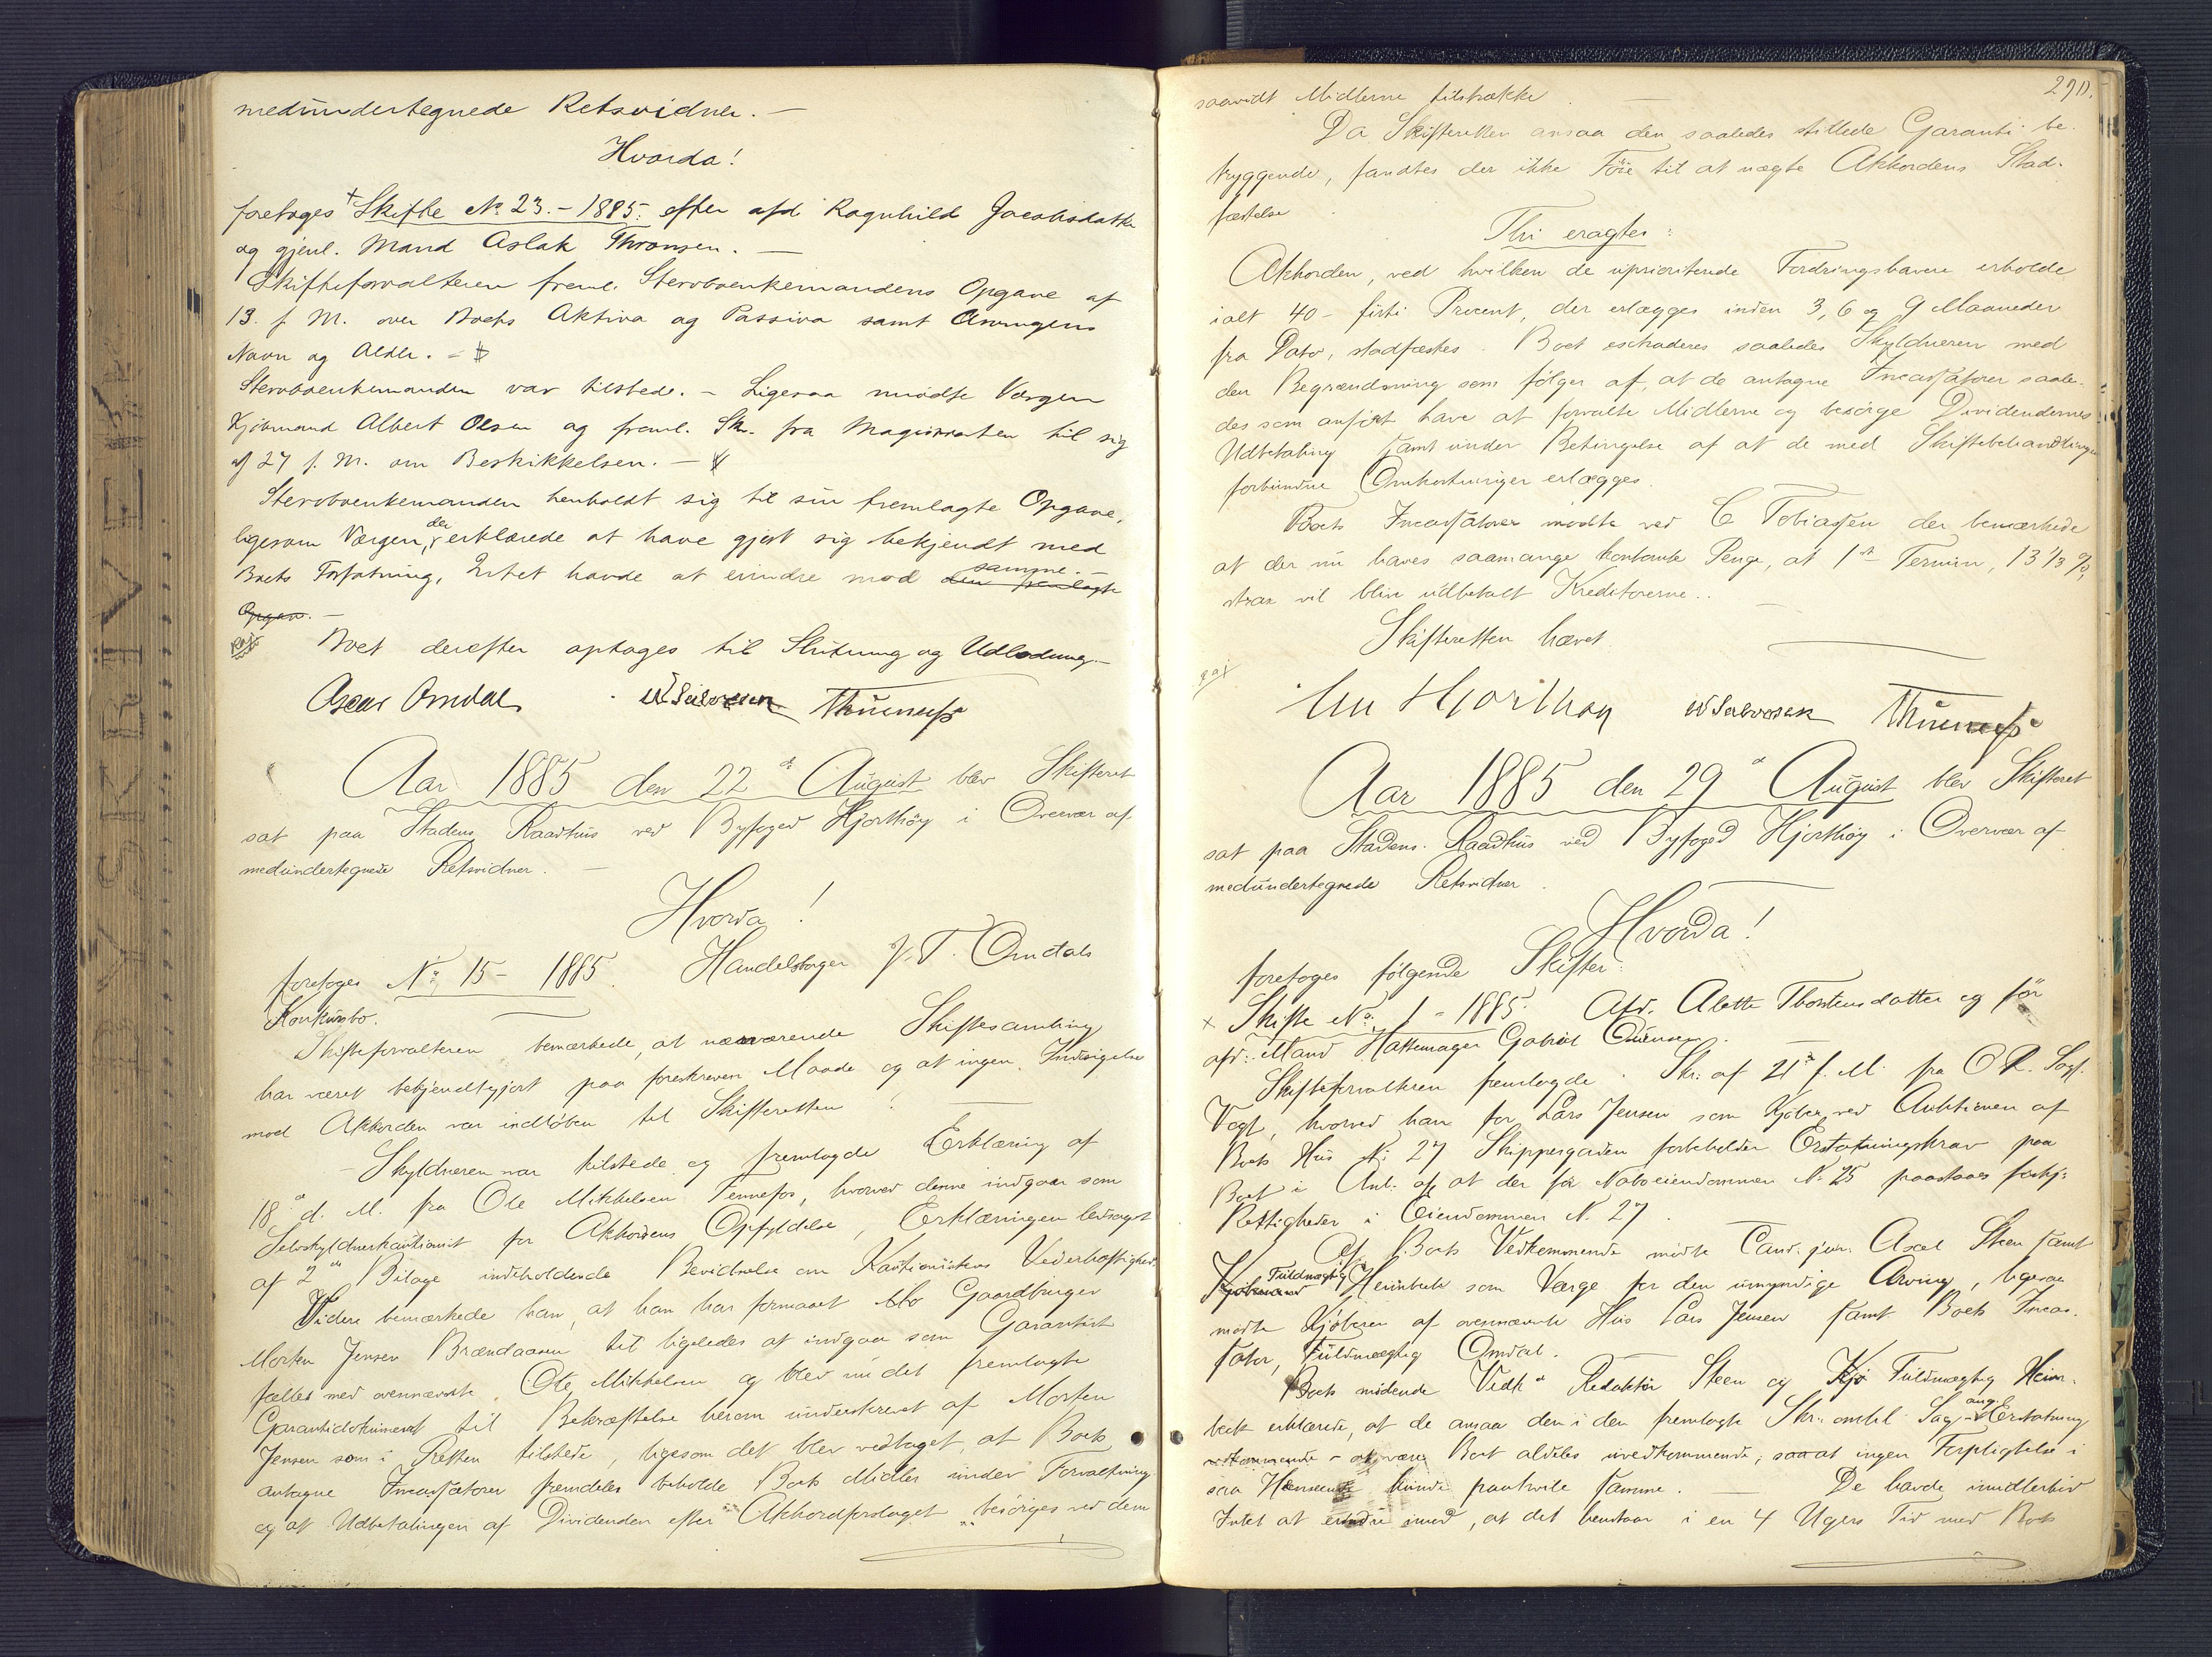 medundertegnede Retsvidner. —
Hvorda!
foretoges + Skifte No. 23. - 1885. efter afd Ragnhild Jacobsdatter
og gjenl. Mand Aslak Thronsen. —
Skifteforvalteren freml. Stervboenkemandens Opgave af
13. f. M. over Boets Aktiva og Passiva samt Arvingens
Navn og Alder. —
Stervboenkemanden var tilstede. — Ligesaa mødte Værgen
Kjöbmand Albert Olsen og freml. Skr. fra Magistraten til sig
af 27 f. M. om Beskikkelsen. —
Stervboenkemanden henholdt sig til sin fremlagte Opgave,
ligesom Værgen, der erklærede at have gjort sig bekjendt med
Boets Forfatning, Intet havde at erindre mod den fremlagte samme. —
Opgave. —
Boet derefter optoges til Slutning og Udlodning. —
Oscar Omdal W Salvesen Thuenes
Aar 1885 den 22de August blev Skifteret
sat paa Stadens Raadhus ved Byfoged Hjorthöy i Overvær af
medundertegnede Retsvidner. —
Hvorda!
foretoges No. 15 - 1885. Handelsborger J. T. Omdals
Konkursbo.
Skifteforvalteren bemærkede, at nærværende Skiftesamling
har været bekjendtgjort paa foreskreven Maade og at ingen Indsigelse
mod Akkorden var indlöben til Skifteretten. —
Skyldneren var tilstede og fremlagde Erklæring af
18de d. M. fra Ole Mikkelsen Fennefos, hvorved denne indgaar som
Selvskyldnerkautionist for Akkordens Opfyldelse, Erklæringen ledsaget
af 2de Bilage indeholdende Bevidnelse om Kautionistens Vederhæftighed.
Videre bemærkede han, at han har formaaet Gaardbruger
Morten Jensen Brændaasen til ligeledes at indgaa som Garantist
fælles med ovennævnte Ole Mikkelsen og blev nu det fremlagte
Garantidokument til Bekræftelse herom underskrevet af Morten
Jensen som i Retten tilstede, ligesom det blev vedtaget, at Boets
antagne Incassatorer fremdeles beholde Boets Midler under Forvaltning
og at Udbetalingen af Dividenden efter Akkordforslaget besörges ved dem
290.
saavidt Midlerne tilstrække. —
Da Skifteretten ansaa den saaledes stillede Garanti be-
tryggende, fandtes der ikke Föie til at nægte Akkordens Stad-
fæstelse.
Thi eragtes:
Akkorden, ved hvilken de uprioriterede Fordringshavere erholde
ialt 40 - firti Procent, der erlægges inden 3, 6 og 9 Maaneder
fra Dato, stadfæstes. Boet extraderes saaledes Skyldneren med
den Begrændsning som følger af, at de antagne Incassatorer saale-
des som anfört have at forvalte Midlerne og besörge Dividendernes
Udbetaling samt under Betingelse af at de med Skiftebehandlingen
forbundne Omkostninger erlægges.
Boets Incassatorer mödte ved C Tobiassen der bemærkede
at der nu haves saamange kontante Penge, at 1ste Termin, 13 1/3 %,
strax vil blive udbetalt Kreditorerne. —
Skifteretten hævet
Hjorthøy W Salvesen Thuenes
Aar 1885 den 29de August blev Skifteret
sat paa Stadens Raadhus ved Byfoged Hjorthöy i Overvær af
medundertegnede Retsvidner.
Hvorda!
foretoges følgende Skifter:
x Skifte No. 1 - 1885. Afd. Alette Thorstensdatter og för
afd. Mand Hattemager Gabriel Ouensen. —
Skifteforvalteren fremlagde Skr. af 21de f. M. fra O R. Sagf.
Vogt, hvorved han for Lars Jensen som Kjöber ved Auktionen af
Boets Hus No. 27 Skippergaden forbeholder Erstatningskrav paa
Boet i Anl. af, at der for Naboeiendommen No. 25 paastaaes forskj.
Rettigheder i Eiendommen N. 27. —
Af Boets Vedkommende mödte Cand. jur. Axel Steen samt
Kjöbmand Fuldmægtig Heimbeck som Værge for den umyndige Arving, ligesaa
mödte Kjöberen af ovennævnte Hus Lars Jensen samt Boets Incas-
sator, Fuldmægtig Omdal.
Boets mödende Vedk. Redaktör Steen og Kjö Fuldmægtig Heim-
beck erklærede, at de ansaa den i den fremlagte Skr. omhl. Sag ang. Erstatning
vedkommende - at være Boet aldeles uvedkommende, saa at ingen Forpligtelse i
saa Henseende kunde paahvile samme. — De havde imidlertid
Intet at erindre imod, at det henstaar i en 4 Ugers Tid med Boets